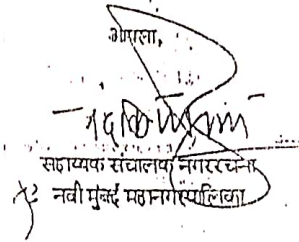 आपला,
सहाय्यक संचालक नगररचना
नवी मुंबई महानगरपालिका